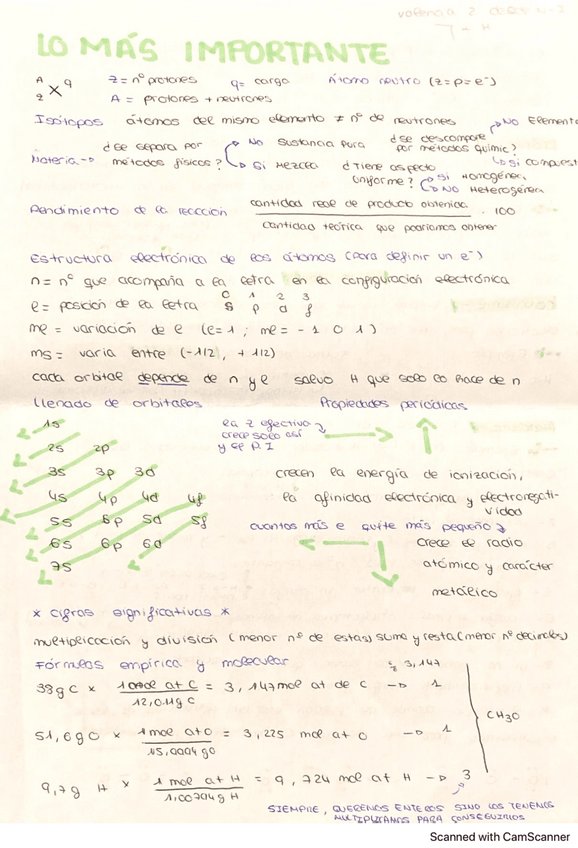 LO MÁS IMPORTANTE
A Z X q Z = nº protones q = carga Átomo neutro (Z=p=e⁻)
A = protones + neutrones
Isótopos átomos del mismo elemento ≠ nº de neutrones
NO Elemento
Materia → ¿Se separa por métodos físicos? NO Sustancia Pura ¿se descompone por métodos químic?
Sí compuest
Sí Mezcla ¿Tiene aspecto uniforme? Sí Homogénea
NO Heterogénea
Rendimiento de la reacción cantidad real de producto obtenida / cantidad teórica que podríamos obtener · 100
Estructura electrónica de los átomos (para definir un e⁻)
n = nº que acompaña a la letra en la configuración electrónica
l = posición de la letra 0 s 1 p 2 d 3 f
ml = variación de l (l=1; ml = -1 0 1)
ms = varia entre (-1/2, +1/2)
cada orbital depende de n y l salvo H que solo lo hace de n
Llenado de orbitales Propiedades periódicas
1s
2s 2p
3s 3p 3d
4s 4p 4d 4f
5s 6p 5d 5f
6s 6p 6d
7s
la Z efectiva crece solo así y el P.I
crecen la energía de ionización,
la afinidad electrónica y electronegatividad
cuantos más e quite más pequeño
crece el radio
atómico y carácter
metálico
* cifras significativas *
multiplicación y división (menor nº de estas) suma y resta (menor nº decimales)
Fórmulas empírica y molecular
: 3,147
38g C × 1 mol at C / 12,011g C = 3,147mol at de C → 1
51,6g O × 1 mol at O / 15,9994 g O = 3,225 mol at O → 1
9,7g H × 1 mol at H / 1,00794 g H = 9,724 mol at H → 3
CH3O
SIEMPRE, QUEREMOS ENTEROS SINO LOS TENEMOS
MULTIPLICAMOS PARA CONSEGUIRLOS
Scanned with CamScanner